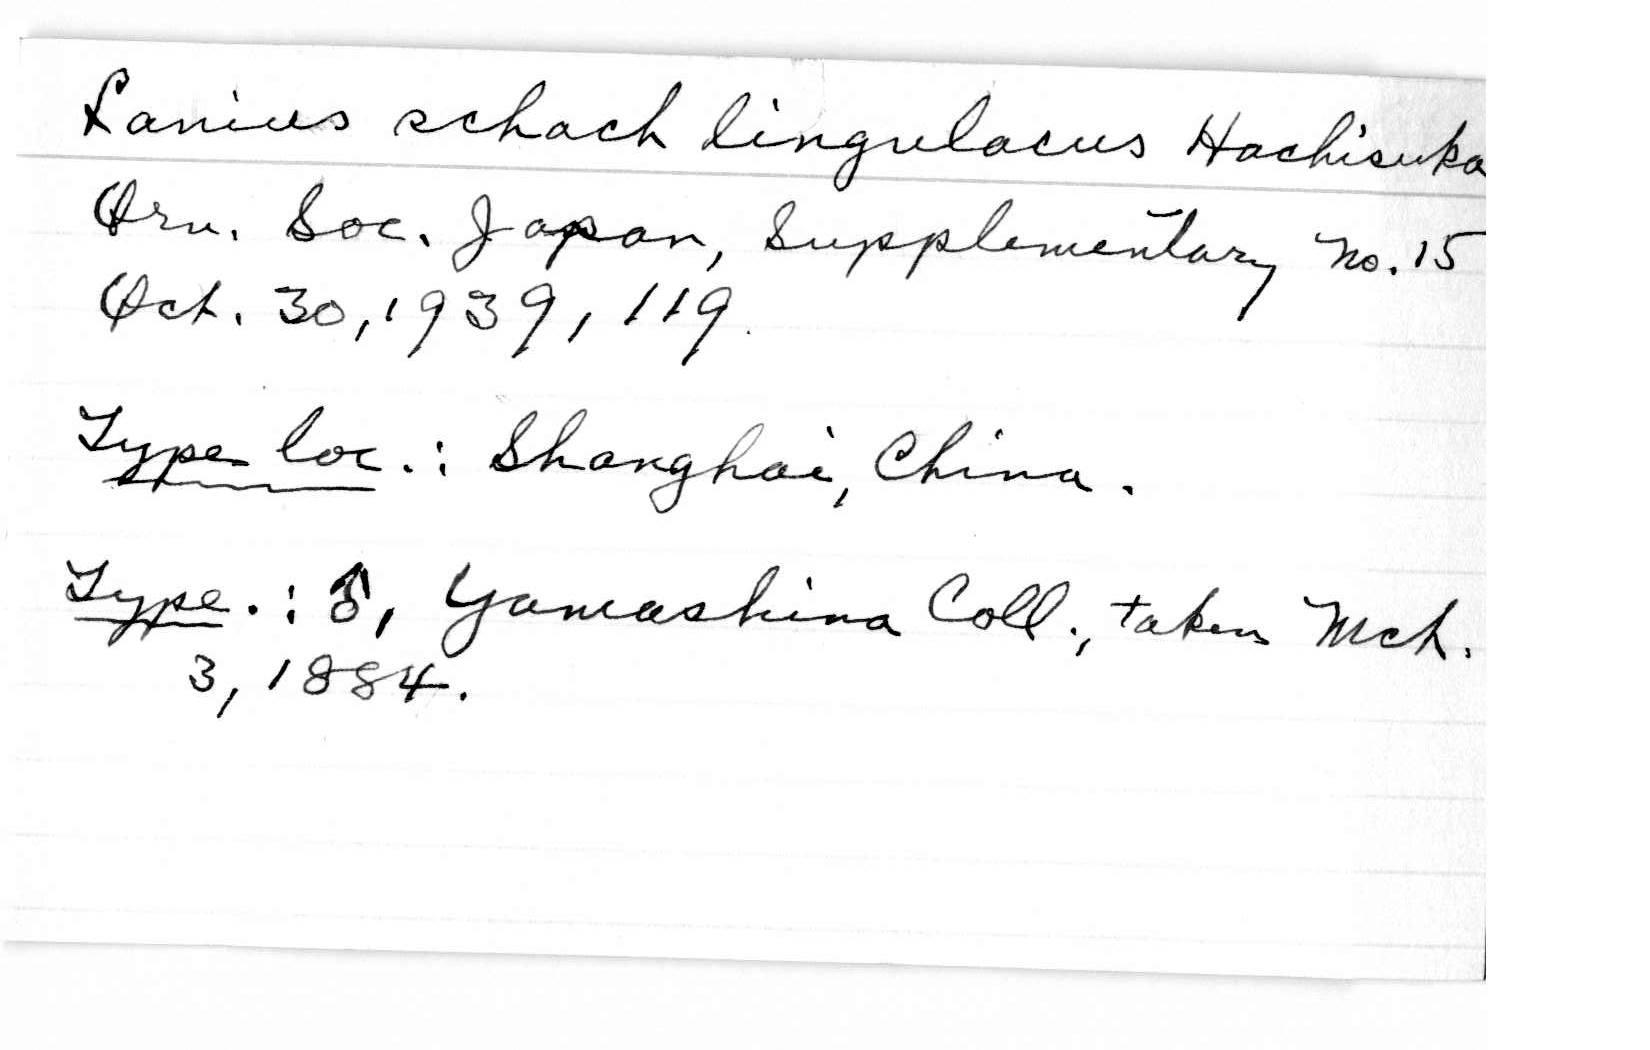 Lanius schach lingulacus Hachisuka
Orn. Soc. Japan, Supplementary No. 15
Oct. 30, 1939, 119.
Type loc.: Shanghai, China.
Type.: ♂, Yamashina Coll., taken Mch.
3, 1884.